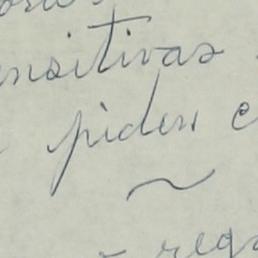 ensitivas
piden c
~
rega